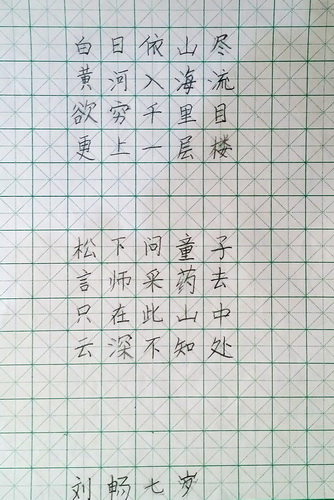 白日依山尽
黄河入海流
欲穷千里目
更上一层楼
松下问童子
言师采药去
只在此山中
云深不知处
刘畅七岁